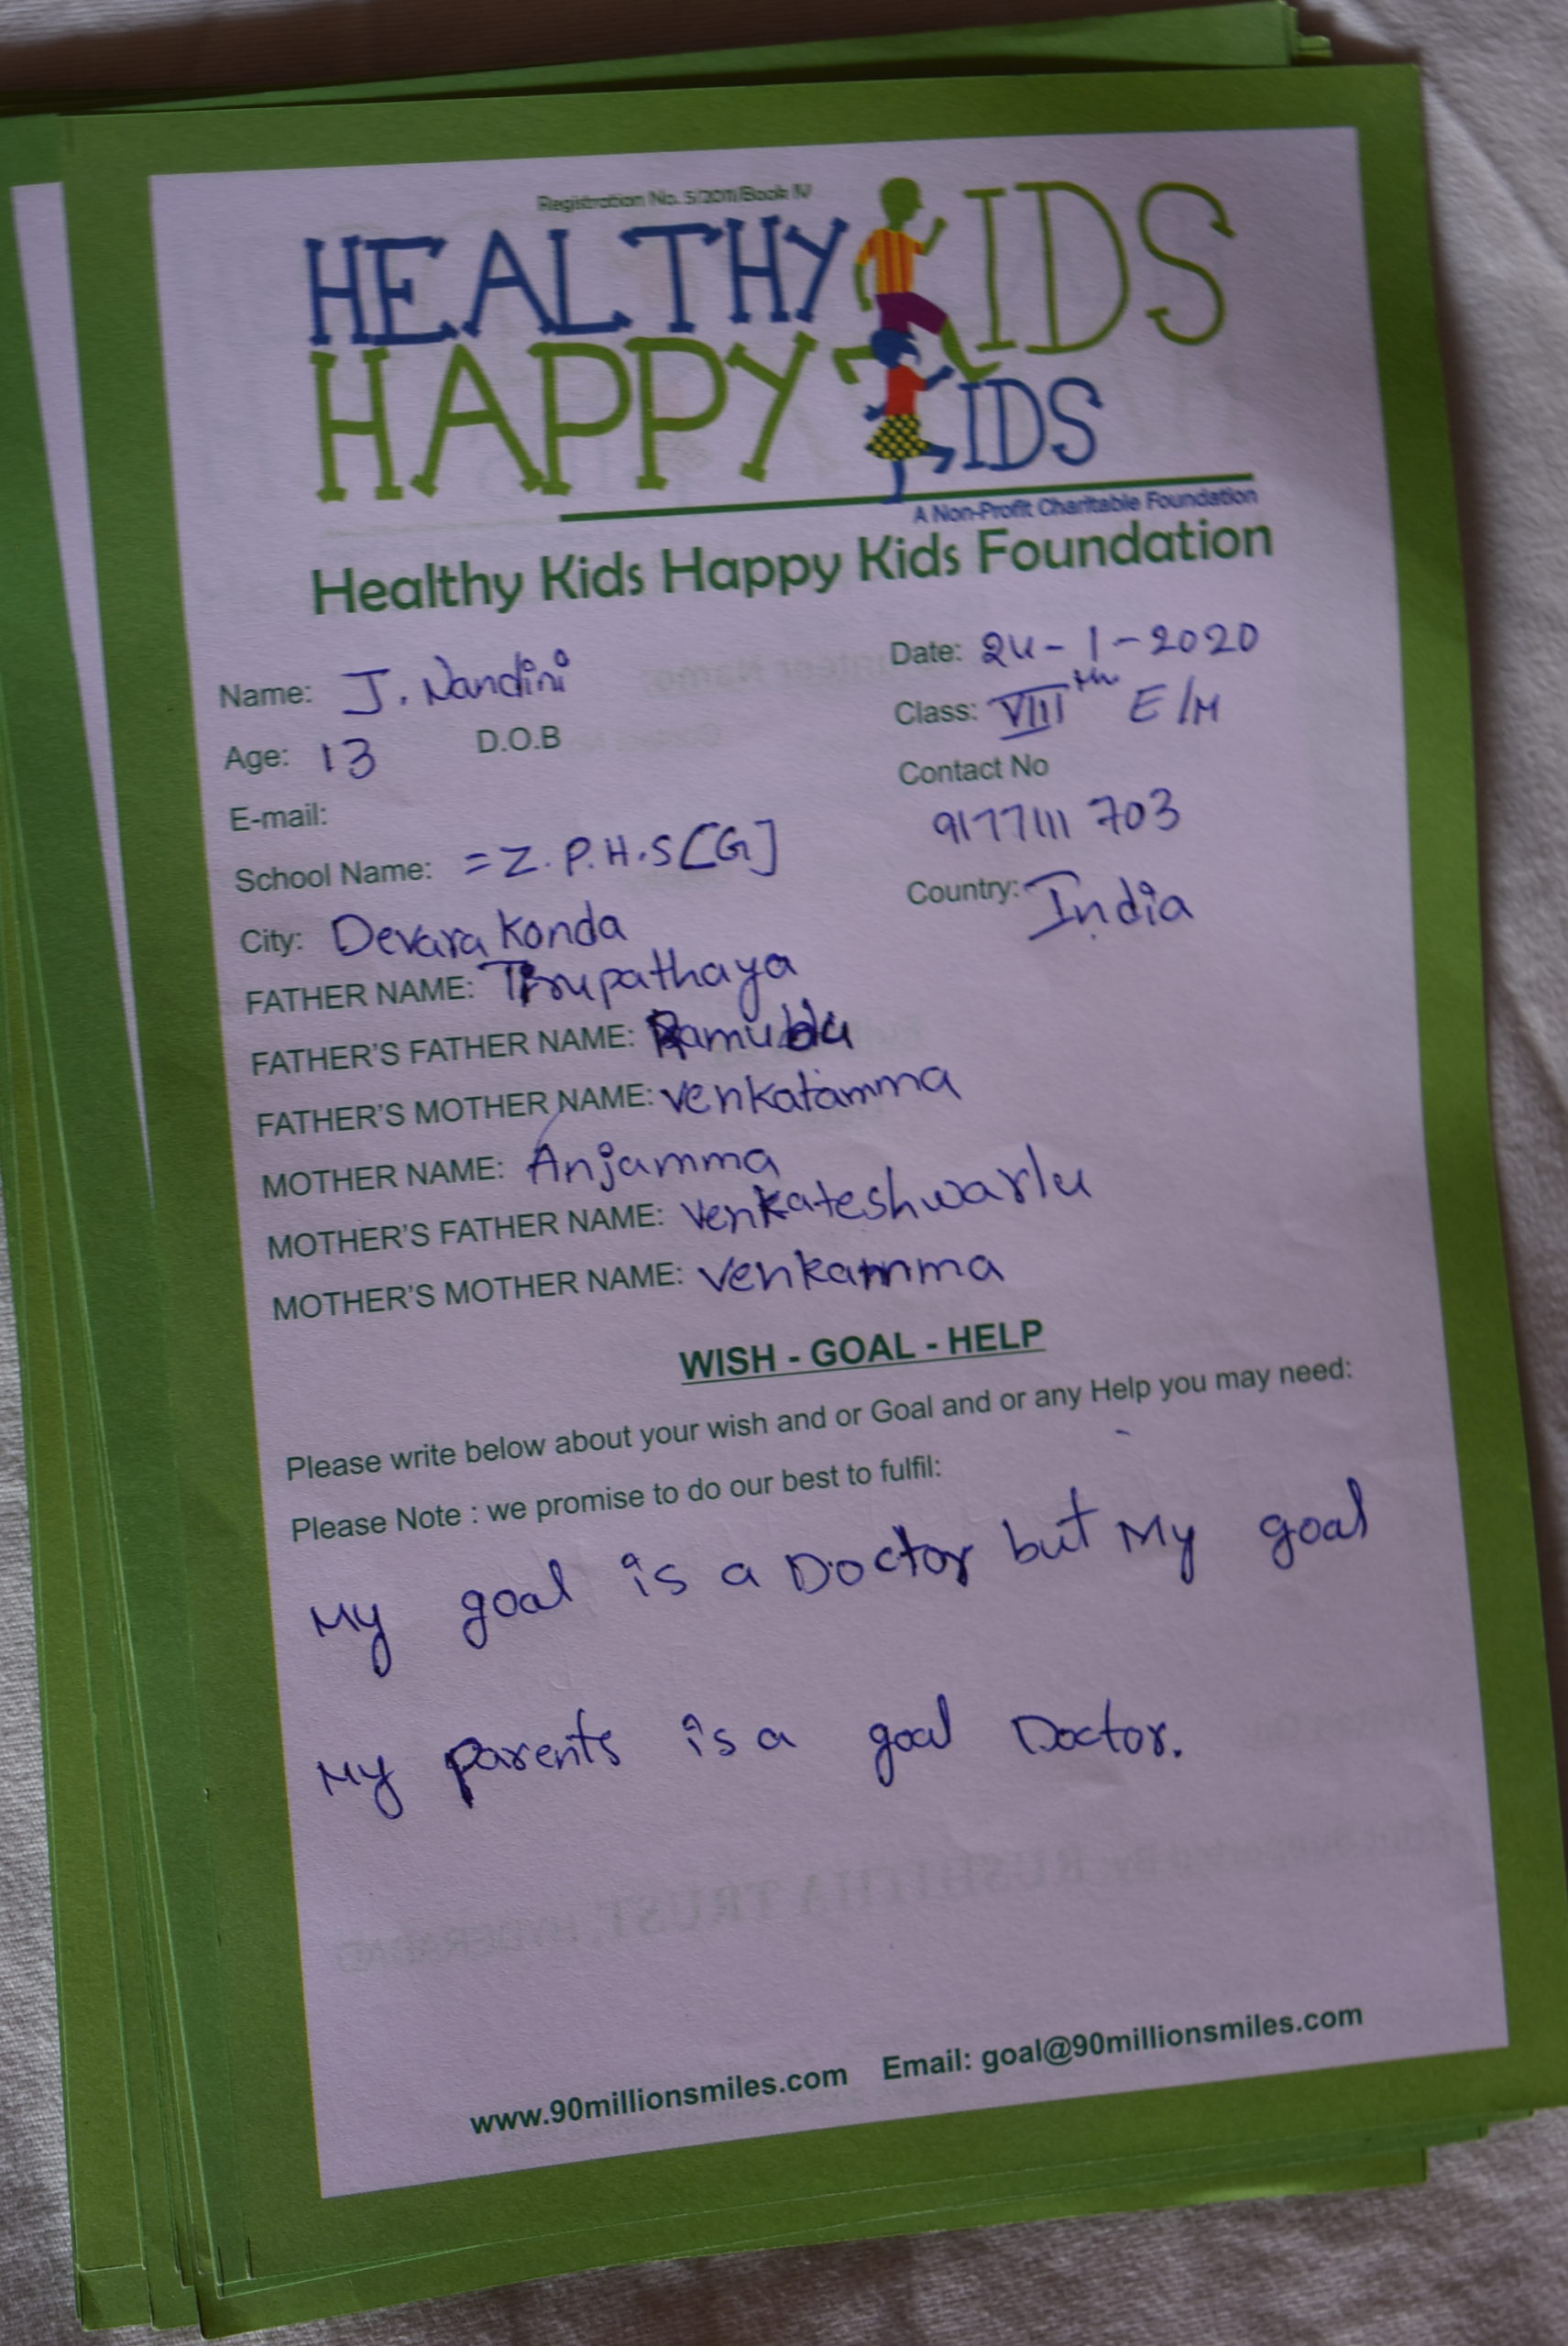 Registration No. 5/2011/Book IV
HEALTHY KIDS
HAPPY KIDS
A Non-Profit Charitable Foundation
Healthy Kids Happy Kids Foundation
Name: J. Nandini Date: 24-1-2020
Age: 13 D.O.B Class: VIIIth E/M
E-mail: Contact No
9177111 703
School Name: = Z.P.H.S[G]
City: Devara Konda Country: India
FATHER NAME: Tirupathaya
FATHER'S FATHER NAME:
FATHER'S MOTHER NAME: venkatamma
MOTHER NAME: Anjamma
MOTHER'S FATHER NAME: Venkateshwarlu
MOTHER'S MOTHER NAME: venkamma
WISH - GOAL - HELP
Please write below about your wish and or Goal and or any Help you may need:
Please Note : we promise to do our best to fulfil:
My goal is a Doctor but My goal
My parents is a goal Doctor.
www.90millionsmiles.com Email: goal@90millionsmiles.com